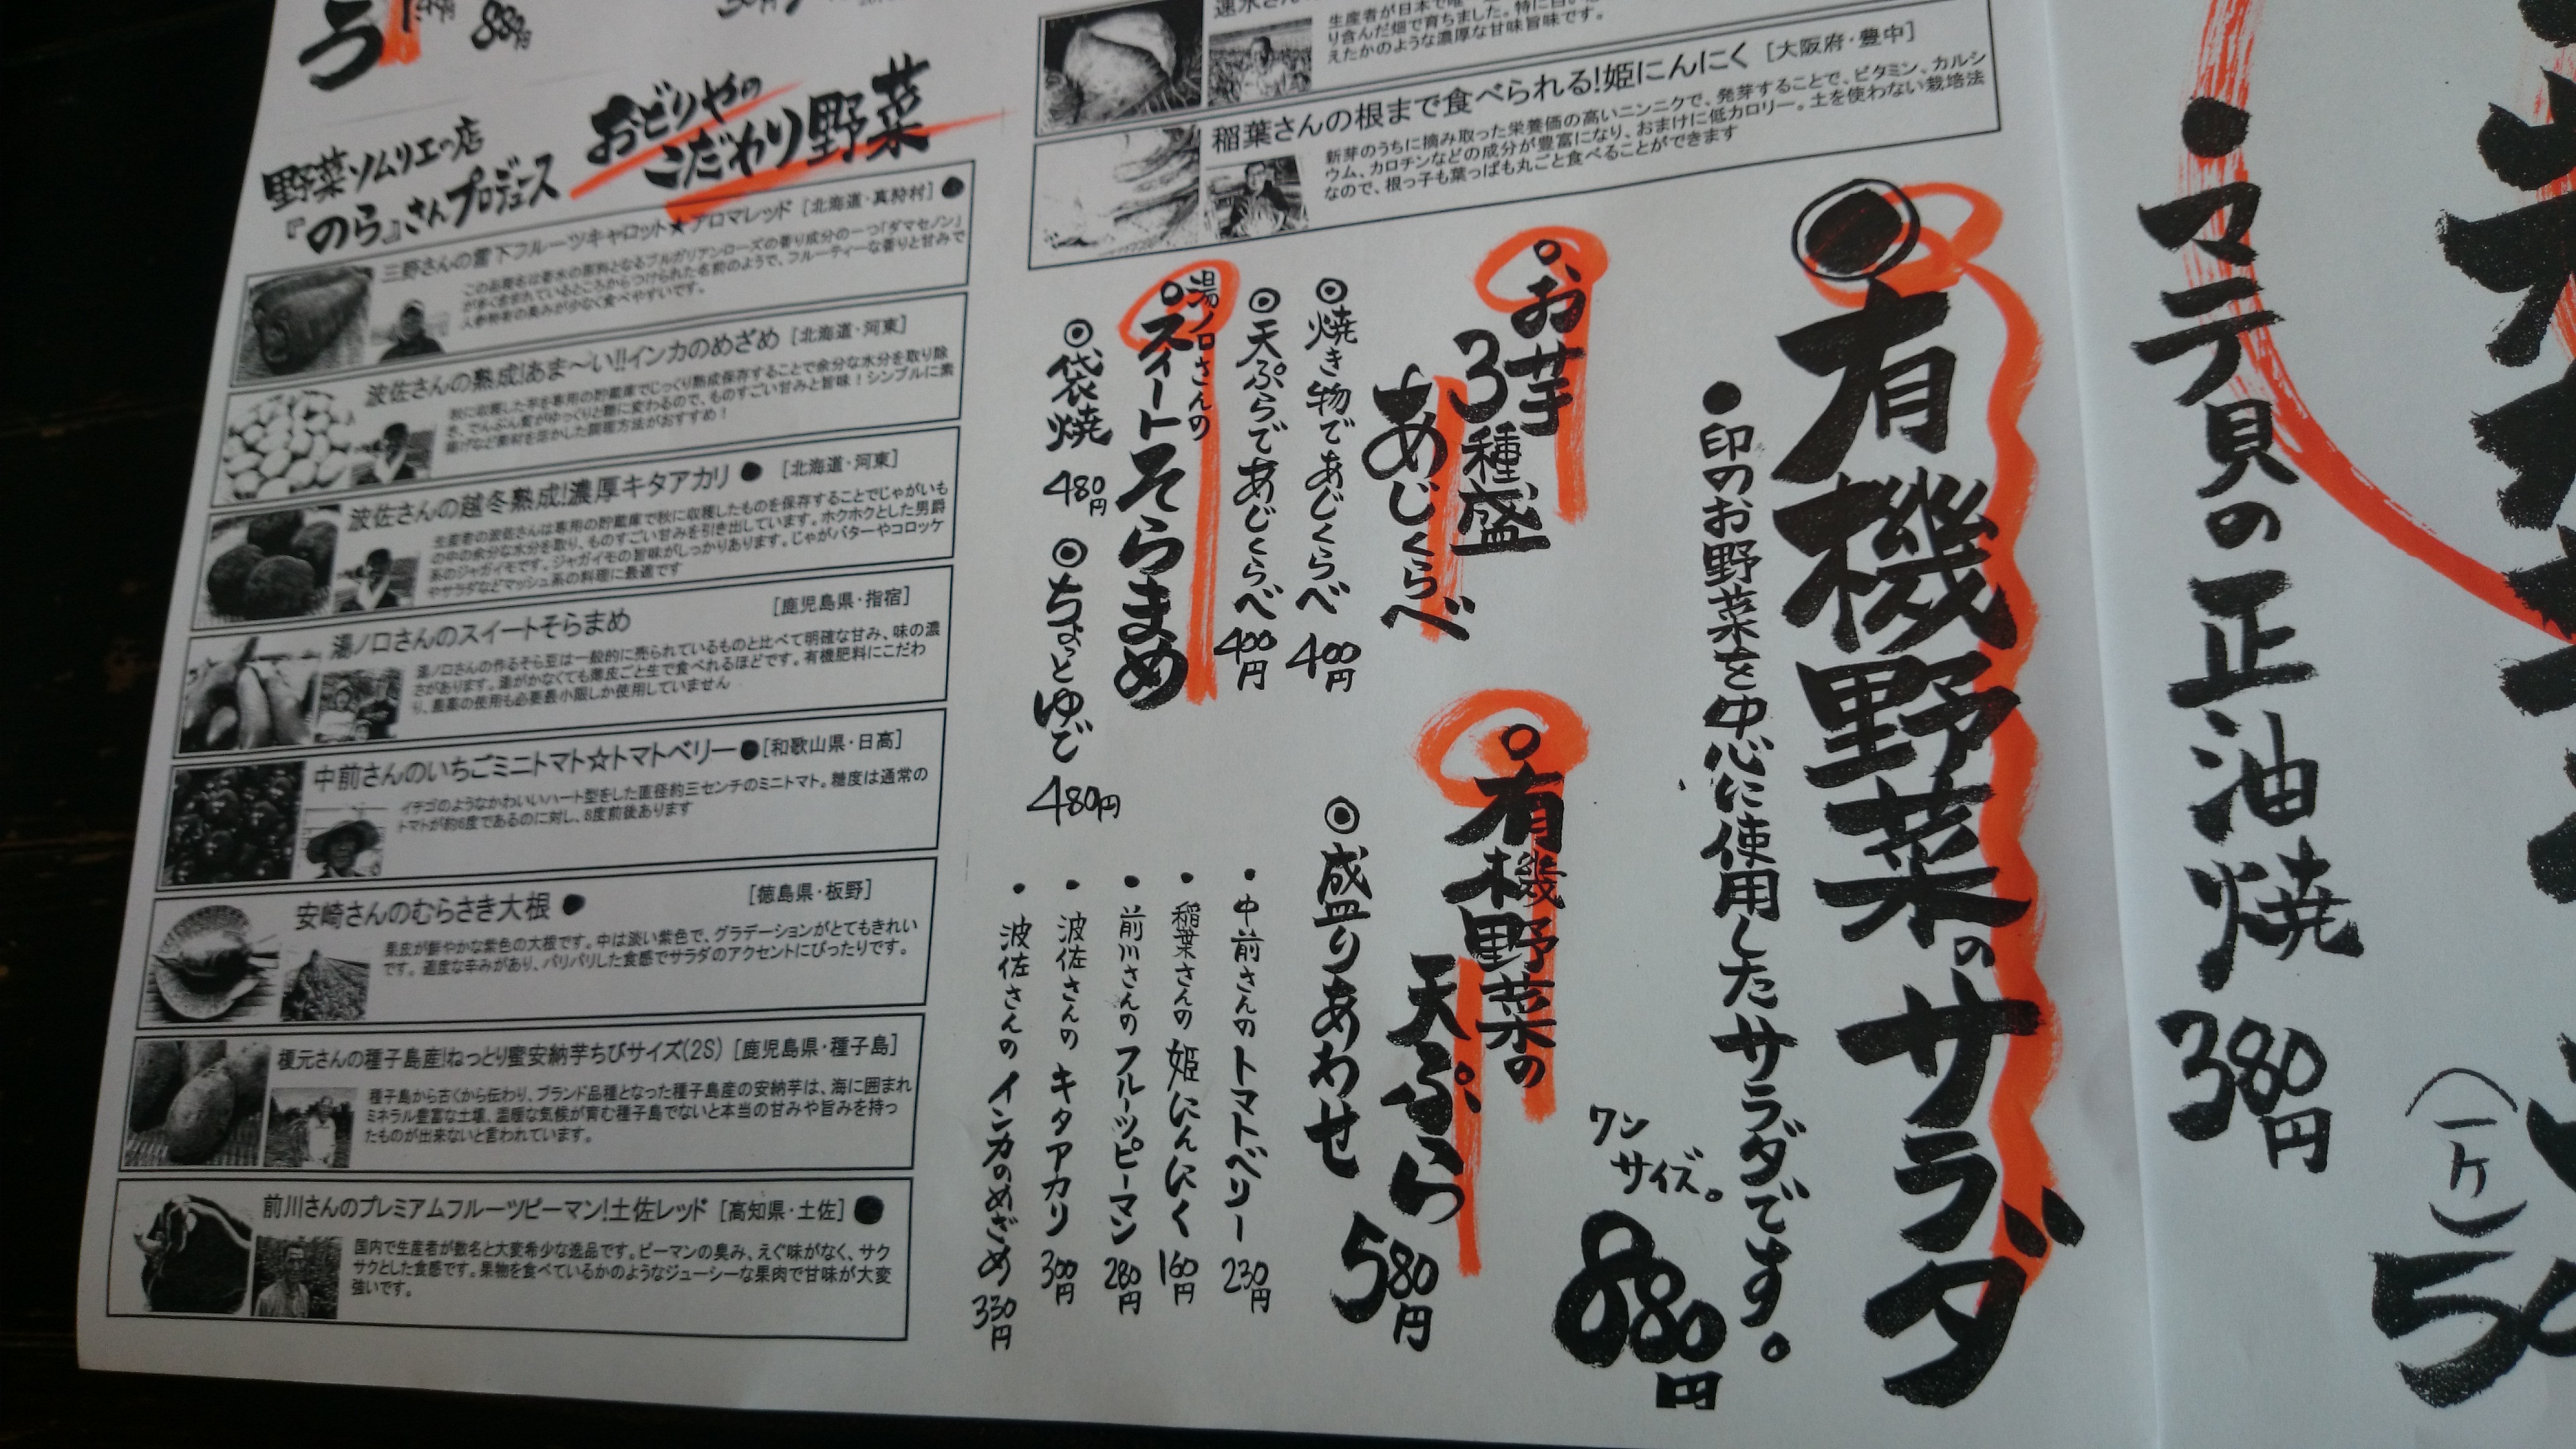 う
880円
野菜ソムリエの店
『のら』さんプロデュース
おどりやの
こだわり野菜
三野さんの雪下フルーツキャロット★アロマレッド [北海道・真狩村] ●
この品種名は香水の原料となるブルガリアンローズの香り成分の一つ「ダマセノン」
が多く含まれているところからつけられた名前のようで、フルーティーな香りと甘みで
人参特有の臭みが少なく食べやすいです。
波佐さんの熟成!あま～い!!インカのめざめ [北海道・河東]
秋に収穫した芋を専用の貯蔵庫でじっくり熟成保存することで余分な水分を取り除
き、でんぷん質がゆっくりと糖に変わるので、ものすごい甘みと旨味！シンプルに素
揚げなど素材を活かした調理方法がおすすめ！
波佐さんの越冬熟成!濃厚キタアカリ ● [北海道・河東]
生産者の波佐さんは専用の貯蔵庫で秋に収穫したものを保存することでじゃがいも
の中の余分な水分を取り、ものすごい甘みを引き出しています。ホクホクとした男爵
系のジャガイモです。ジャガイモの旨味がしっかりあります。じゃがバターやコロッケ
やサラダなどマッシュ系の料理に最適です
湯ノ口さんのスイートそらまめ [鹿児島県・指宿]
湯ノ口さんの作るそら豆は一般的に売られているものと比べて明確な甘み、味の濃
さがあります。湯がかなくても薄皮ごと生で食べれるほどです。有機肥料にこだわ
り、農薬の使用も必要最小限しか使用していません
中前さんのいちごミニトマト☆トマトベリー ● [和歌山県・日高]
イチゴのようなかわいいハート型をした直径約三センチのミニトマト。糖度は通常の
トマトが約6度であるのに対し、8度前後あります
安崎さんのむらさき大根 ● [徳島県・板野]
果皮が鮮やかな紫色の大根です。中は淡い紫色で、グラデーションがとてもきれい
です。適度な辛みがあり、パリパリした食感でサラダのアクセントにぴったりです。
榎元さんの種子島産!ねっとり蜜安納芋ちびサイズ(2S) [鹿児島県・種子島]
種子島から古くから伝わり、ブランド品種となった種子島産の安納芋は、海に囲まれ
ミネラル豊富な土壌、温暖な気候が育む種子島でないと本当の甘みや旨みを持っ
たものが出来ないと言われています。
前川さんのプレミアムフルーツピーマン!土佐レッド [高知県・土佐] ●
国内で生産者が数名と大変希少な逸品です。ピーマンの臭み、えぐ味がなく、サク
サクとした食感です。果物を食べているかのようなジューシーな果肉で甘味が大変
強いです。
生産者が日本で唯一
り含んだ畑で育ちました。特に白い
えたかのような濃厚な甘味旨味です。
稲葉さんの根まで食べられる!姫にんにく [大阪府・豊中]
新芽のうちに摘み取った栄養価の高いニンニクで、発芽することで、ビタミン、カルシ
ウム、カロチンなどの成分が豊富になり、おまけに低カロリー。土を使わない栽培法
なので、根っ子も葉っぱも丸ごと食べることができます
●有機野菜のサラダ
●印のお野菜を中心に使用したサラダです。
ワン
サイズ。
880円
お芋
3種盛
あじくらべ
◎焼き物であじくらべ 400円
◎天ぷらであじくらべ 400円
湯ノ口さんの
スイートそらまめ
◎袋焼 480円
◎ちょっとゆで 480円
有機野菜の
天ぷら
◎盛りあわせ 580円
・中前さんのトマトベリー 230円
・稲葉さんの姫にんにく 160円
・前川さんのフルーツピーマン 280円
・波佐さんのキタアカリ 300円
・波佐さんのインカのめざめ 330円
・マテ貝の正油焼 380円
(一ケ)